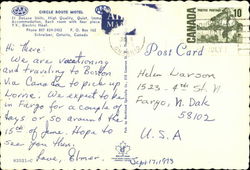 CIRCLE ROUTE MOTEL
22 Deluxe Units, High Quality, Quiet,
Phone 807 824-2452 P.O. Box 162
Schreiber, Ontario, Canada
AIR MAIL
CANADA
10
Hi there!
We are vacationing
and traveling to Boston
via Canada to pick up
Lorne. We expect to be
in Fargo for a couple of
days or so around the
15th of June. Hope to
see you then.
Love, Elmer.
Post Card
Helen Larson
1523 - 4th St. N
Fargo, N. Dak
58102
U.S.A
Sept 17, 1973